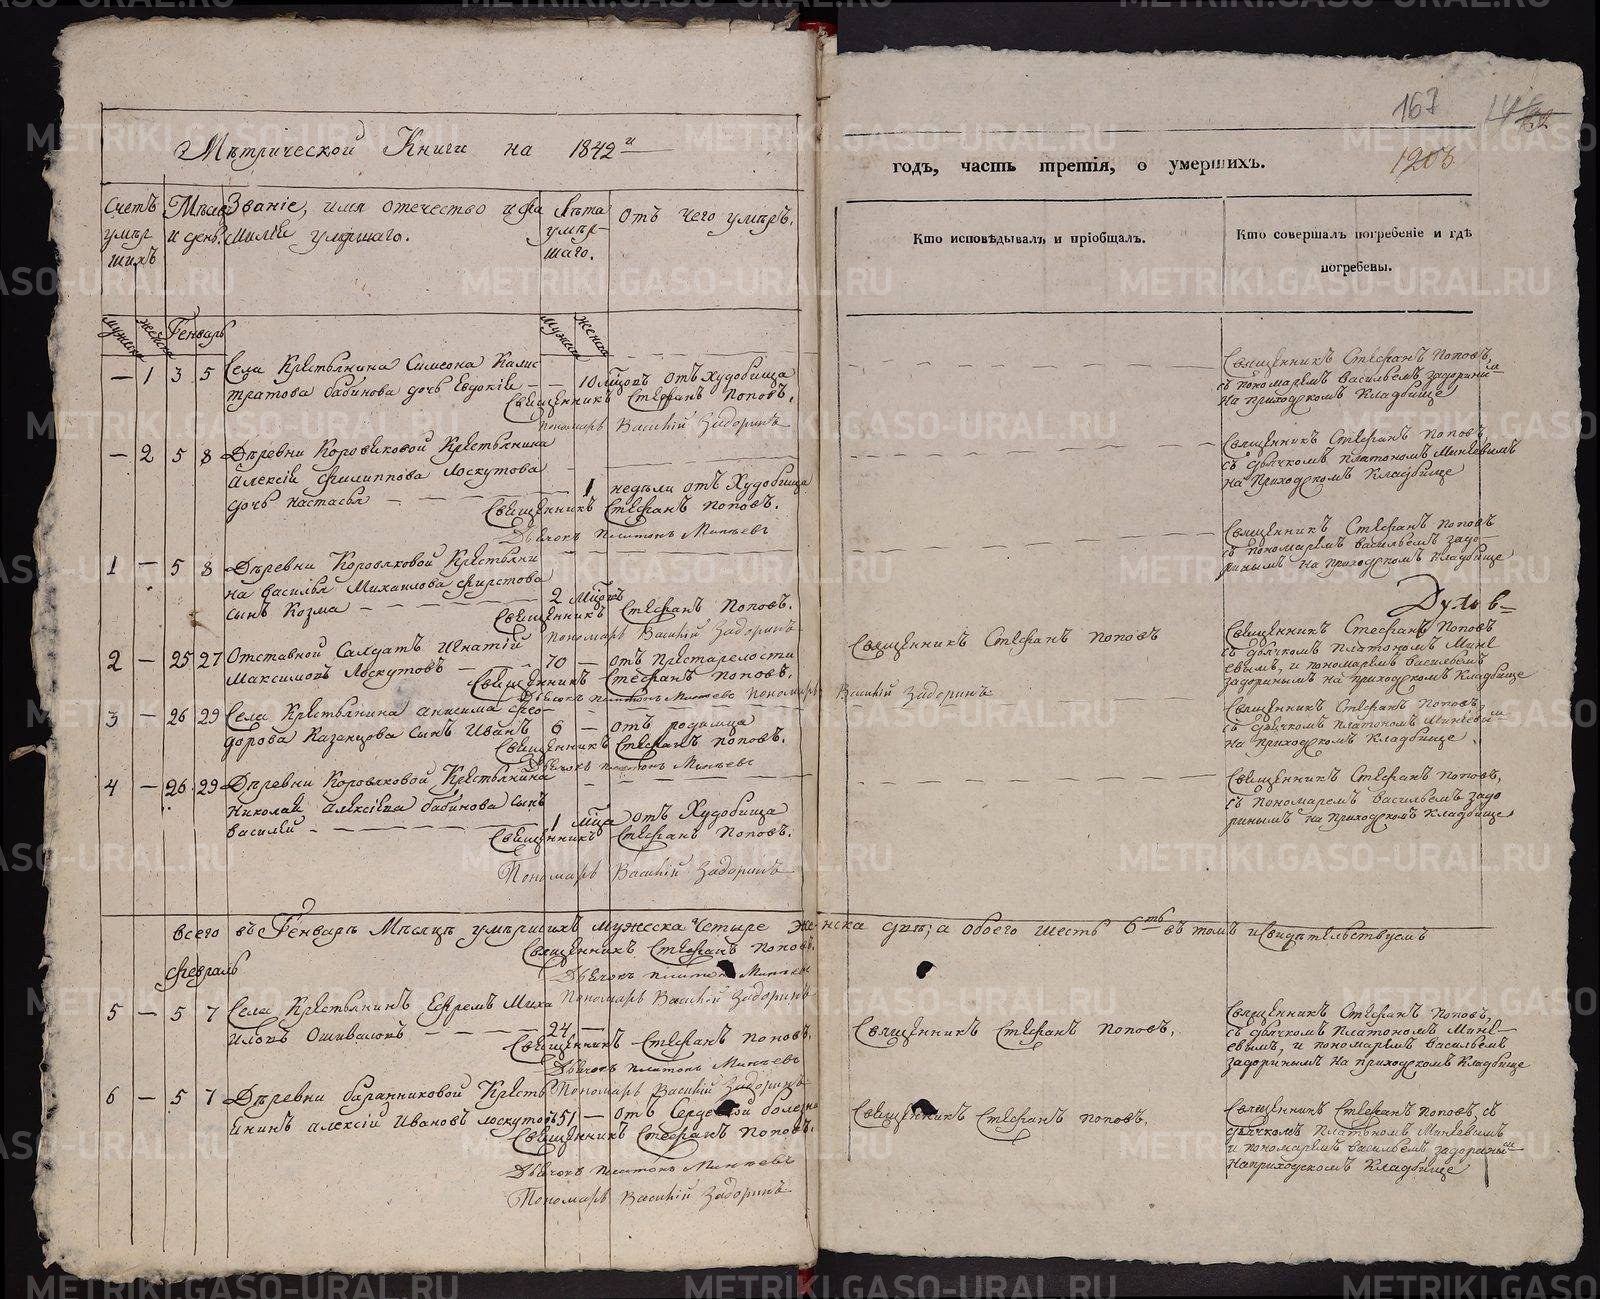 Метрической Книги на 1842й
Счетъ умер шихъ
Месяцъ и день.
Званіе, имя отечество и фа
милія умершаго.
Лета умер-
шаго.
отъ чего умеръ.
мужска
женска
Генварь
мужска
женска
— 1 3 5 Села Крестьянина Симеона Калис
тратова бабинова дочь Евдокія — — 10 мцовъ отъ худобища
Священникъ Стефанъ Поповъ.
пономарь Василій Задоринъ
— 2 5 8 Деревни Коровяковой Крестьянина
алексія филиппова Лоскутова
дочь настасья — 1 недели отъ Худобища
Священникъ Стефанъ поповъ.
Дьячокъ платонъ Минеевъ
1 — 5 8 Деревни Коровяковой Крестьяни
на василья Михаилова фирстова
сынъ Козма — 2 мцовъ
Священникъ Стефанъ Поповъ.
пономарь Василій Задоринъ
2 — 25 27 Отставной Салдатъ Игнатій
Максимовъ Лоскутовъ — 70 — отъ престарелости
Священникъ Стефанъ поповъ.
Дьячокъ платонъ Минеевъ пономарь Василій Задоринъ
3 — 26 29 Села Крестьянина анисима фео
дорова Казанцова сынъ Иванъ 6 — отъ родимца
Священникъ Стефанъ поповъ.
Дьячокъ платонъ Минеевъ
4 — 26 29 Деревни Коровяковой Крестьянина
Николая алексіева бабинова сынъ
василій — 1 мца отъ Худобища
Священникъ Стефанъ Поповъ.
Пономарь Василій Задоринъ
всего въ Генваре Месяце умершихъ мужеска четыре женска две; а обоего шесть 6ть въ томъ и свидетельствуемъ
Священникъ Стефанъ поповъ.
Дьячокъ платонъ Минеевъ
Пономарь Василій Задоринъ
февраль
5 — 5 7 Села Крестьянинъ Ефремъ Миха
иловъ Ошиваловъ — 24 —
Священникъ Стефанъ поповъ.
Дьячокъ платонъ Минеевъ
Пономарь Василій Задоринъ
6 — 5 7 Деревни баранниковой Кресть
янинъ алексій Ивановъ лоскутовъ 51 — отъ Сердечной болезни
Священникъ Стефанъ поповъ.
Дьячокъ платонъ Минеевъ
Пономарь Василій Задоринъ
167
1203
годъ, часть третія, о умершихъ.
Кто исповѣдывалъ и пріобщалъ.
Кто совершалъ погребеніе и гдѣ
погребены.
Священникъ Стефанъ поповъ,
съ пономаремъ васильемъ задоринымъ
на приходскомъ Кладбище
Священникъ Стефанъ поповъ
съ дьячкомъ платономъ Минеевымъ
на Приходскомъ Кладбище
Священникъ Стефанъ поповъ
съ пономаремъ васильемъ задо
ринымъ на приходскомъ Кладбище
Священникъ Стефанъ поповъ
Священникъ Стефанъ Поповъ
съ дьячкомъ платономъ Мине
евымъ, и пономаремъ васильемъ
задоринымъ на приходскомъ Кладбище
Священникъ Стефанъ поповъ
съ дьячкомъ платономъ Минеевымъ
на приходскомъ Кладбище.
Священникъ Стефанъ поповъ,
съ пономаремъ васильемъ задо
ринымъ на приходскомъ Кладбище
Священникъ Стефанъ Поповъ.
Священникъ Стефанъ поповъ,
съ дьячкомъ платономъ Мине-
евымъ, и пономаремъ васильемъ
задоринымъ на приходскомъ Кладбище
Священникъ Стефанъ поповъ.
Священникъ Стефанъ поповъ, съ
дьячкомъ платономъ Минеевымъ
и пономаремъ васильемъ задоринымъ
на приходскомъ Кладбище
METRIKI.GASO-URAL.RU